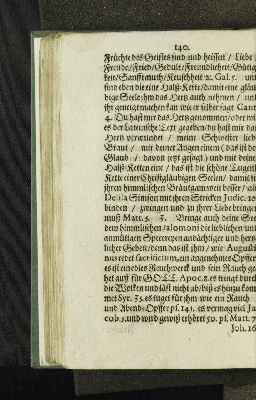 140.
Früchte des Geistes sind und heissen / Liebe /
Freude / Fried / Gedult / Freundlichkeit / Gütig
keit / Sanfftmuth / Keuschheit ꝛc. Gal. 5. und
sind eben die eine Halß-Kette / damit eine gläu
bige Seele ihm das Hertz auch nehmen / und
ihr geneigt machen kan wie er selber sagt Cant
4. Du hast mir das Hertz genommen / oder wie
es der Lateinische Text gegeben / du hast mir das
Hertz verwundet / meine Schwester liebe
Braut / mit deiner Augen einem ( das ist der
Glaub / davon jetzt gesagt) und mit deiner
Halß-Ketten eine / das ist die schöne Tugend
Kette einer Christgläubigen Seelen / damit sie
ihren himmlischen Bräutgam weit besser / als
Delila Simson mit ihren Stricken Judic. 16
binden / zwingen und zu ihrer Liebe bringen
muß Matt. 5 3. Bringe auch deine Seele
dem himmlischen Salomoni die lieblichen und
anmütigen Specereyen andächtiger und hertz
licher Gebete / denn das ist ihm / wie Augusti
nus redet sacrificium, ein angenehmes Opffer
es ist ein edles Rauchwerck und sein Rauch ge
het auff für GOTT. Apoc. 8. es dringt durch
die Wolcken und läst nicht ab / biß es hinzu kom
met Syr. 35. es tuget für ihm wie ein Rauch
und Abend-Opffer / ps. 141. es vermag viel Ja
cob. 5. und wird gewiß erhöret 50. pf. Matt. 7
Joh. 16